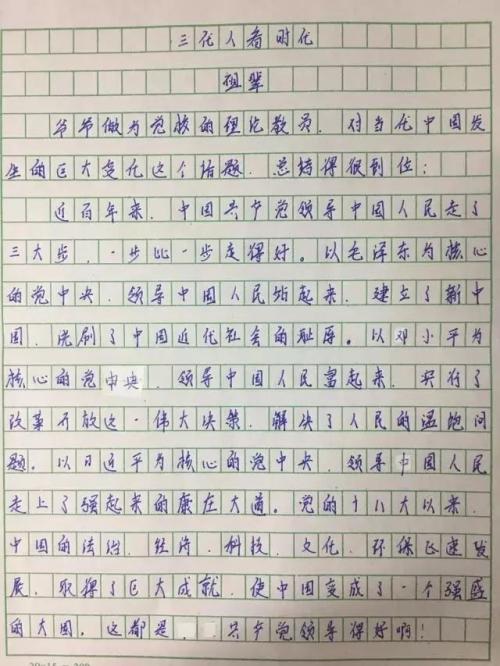 三代人看时代
祖辈
爷爷做为党校的理论教员，对当代中国发
生的巨大变化这个话题，总结得很到位：
近百年来，中国共产党领导中国人民走了
三大步，一步比一步走得好。以毛泽东为核心
的党中央，领导中国人民站起来，建立了新中
国，洗刷了中国近代社会的耻辱。以邓小平为
核心的党中央，领导中国人民富起来，实行了
改革开放这一伟大决策，解决了人民的温饱问
题。以习近平为核心的党中央，领导中国人民
走上了强起来的康庄大道。党的十八大以来，
中国的法治、经济、科技、文化、环保迅速发
展，取得了巨大成就，使中国变成了一个强盛
的大国。这都是，共产党领导得好啊！